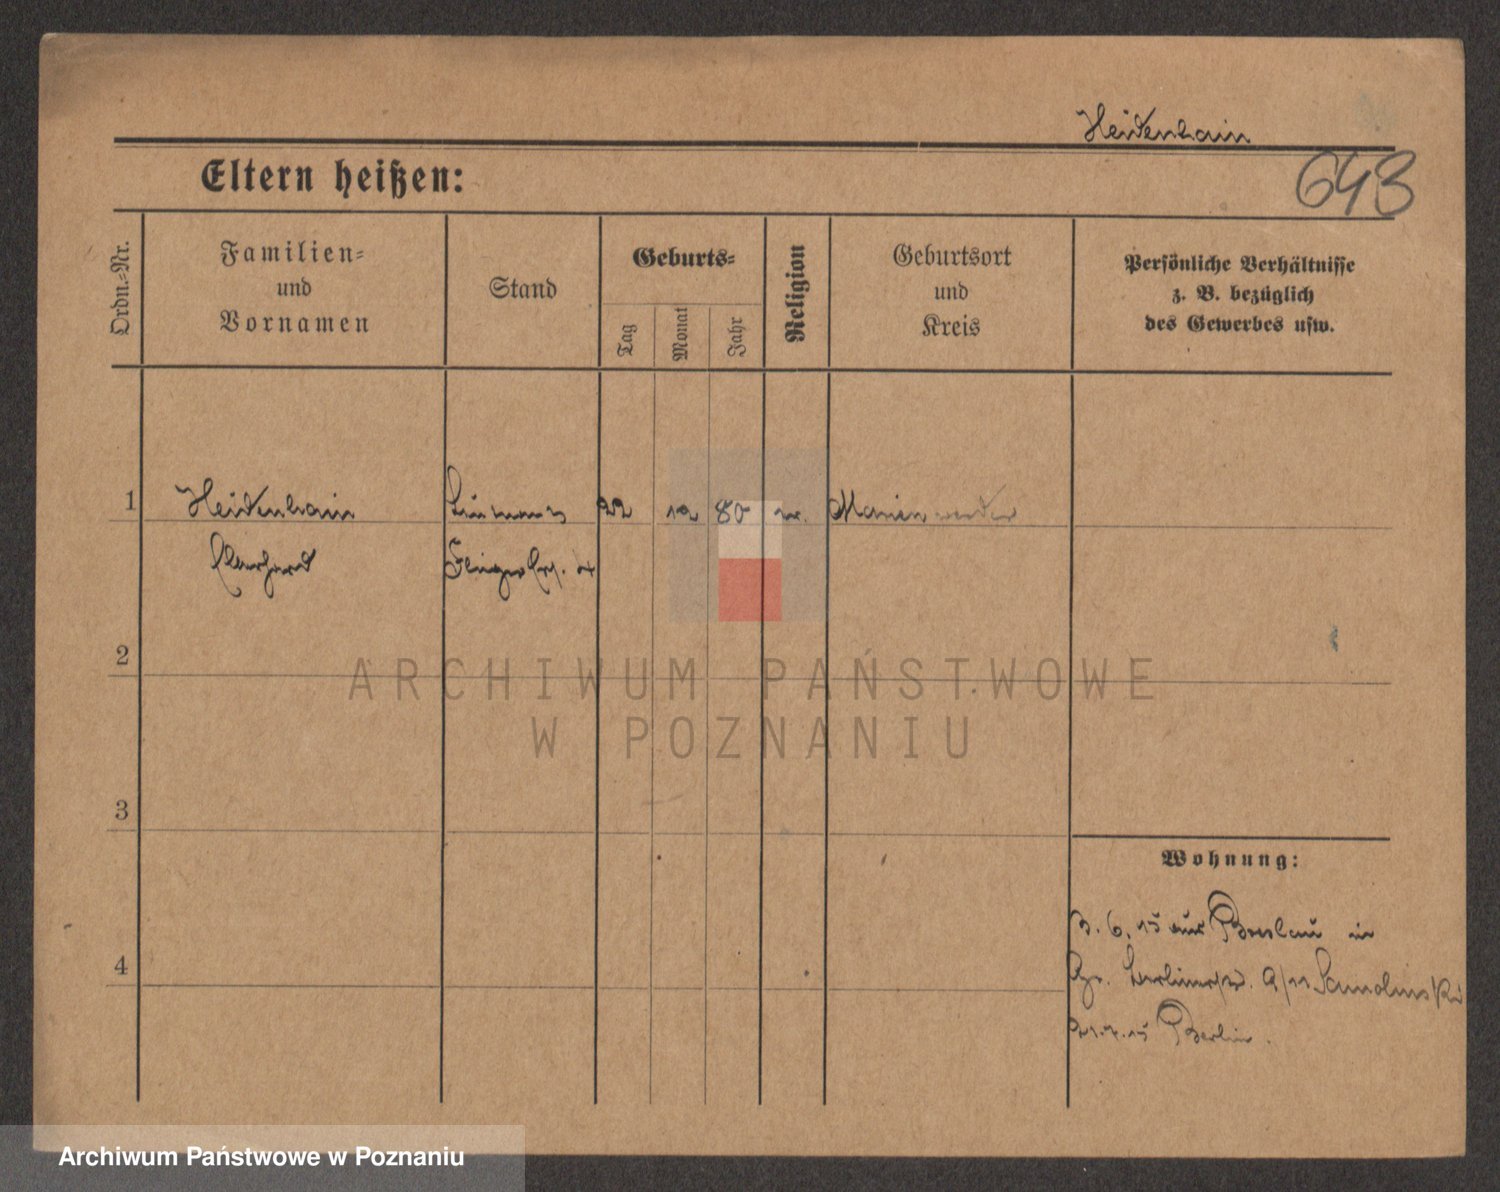 Heidenhain
643
Eltern heißen:
Ordn.-Nr.
Familien-
und
Vornamen
Stand
Geburts-
Tag
Monat
Jahr
Religion
Geburtsort
und
Kreis
Persönliche Verhältnisse
z. B. bezüglich
des Gewerbes usw.
1
Heidenhain
22
12
80
Marienwerder
Eberhard
2
ARCHIWUM PAŃSTWOWE
W POZNANIU
3
Wohnung:
3. 6. 15 aus Breslau in
4
Berlin.
Archiwum Państwowe w Poznaniu